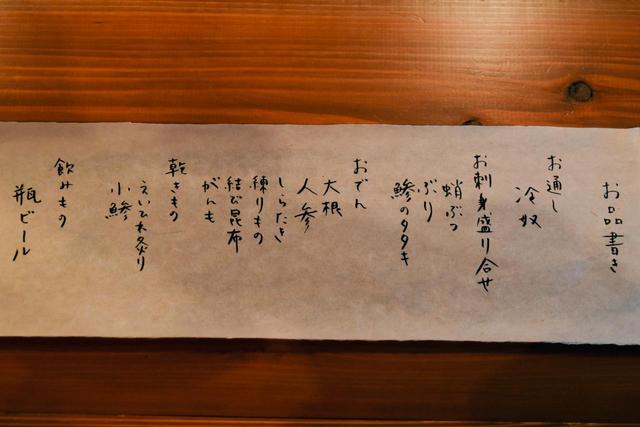 お品書き
お通し
冷奴
お刺身盛り合せ
蛸ぶつ
ぶり
鯵のタタキ
おでん
大根
人参
しらたき
練りもの
結び昆布
がんも
乾きもの
えいひれ炙り
小鯵
飲みもの
瓶ビール